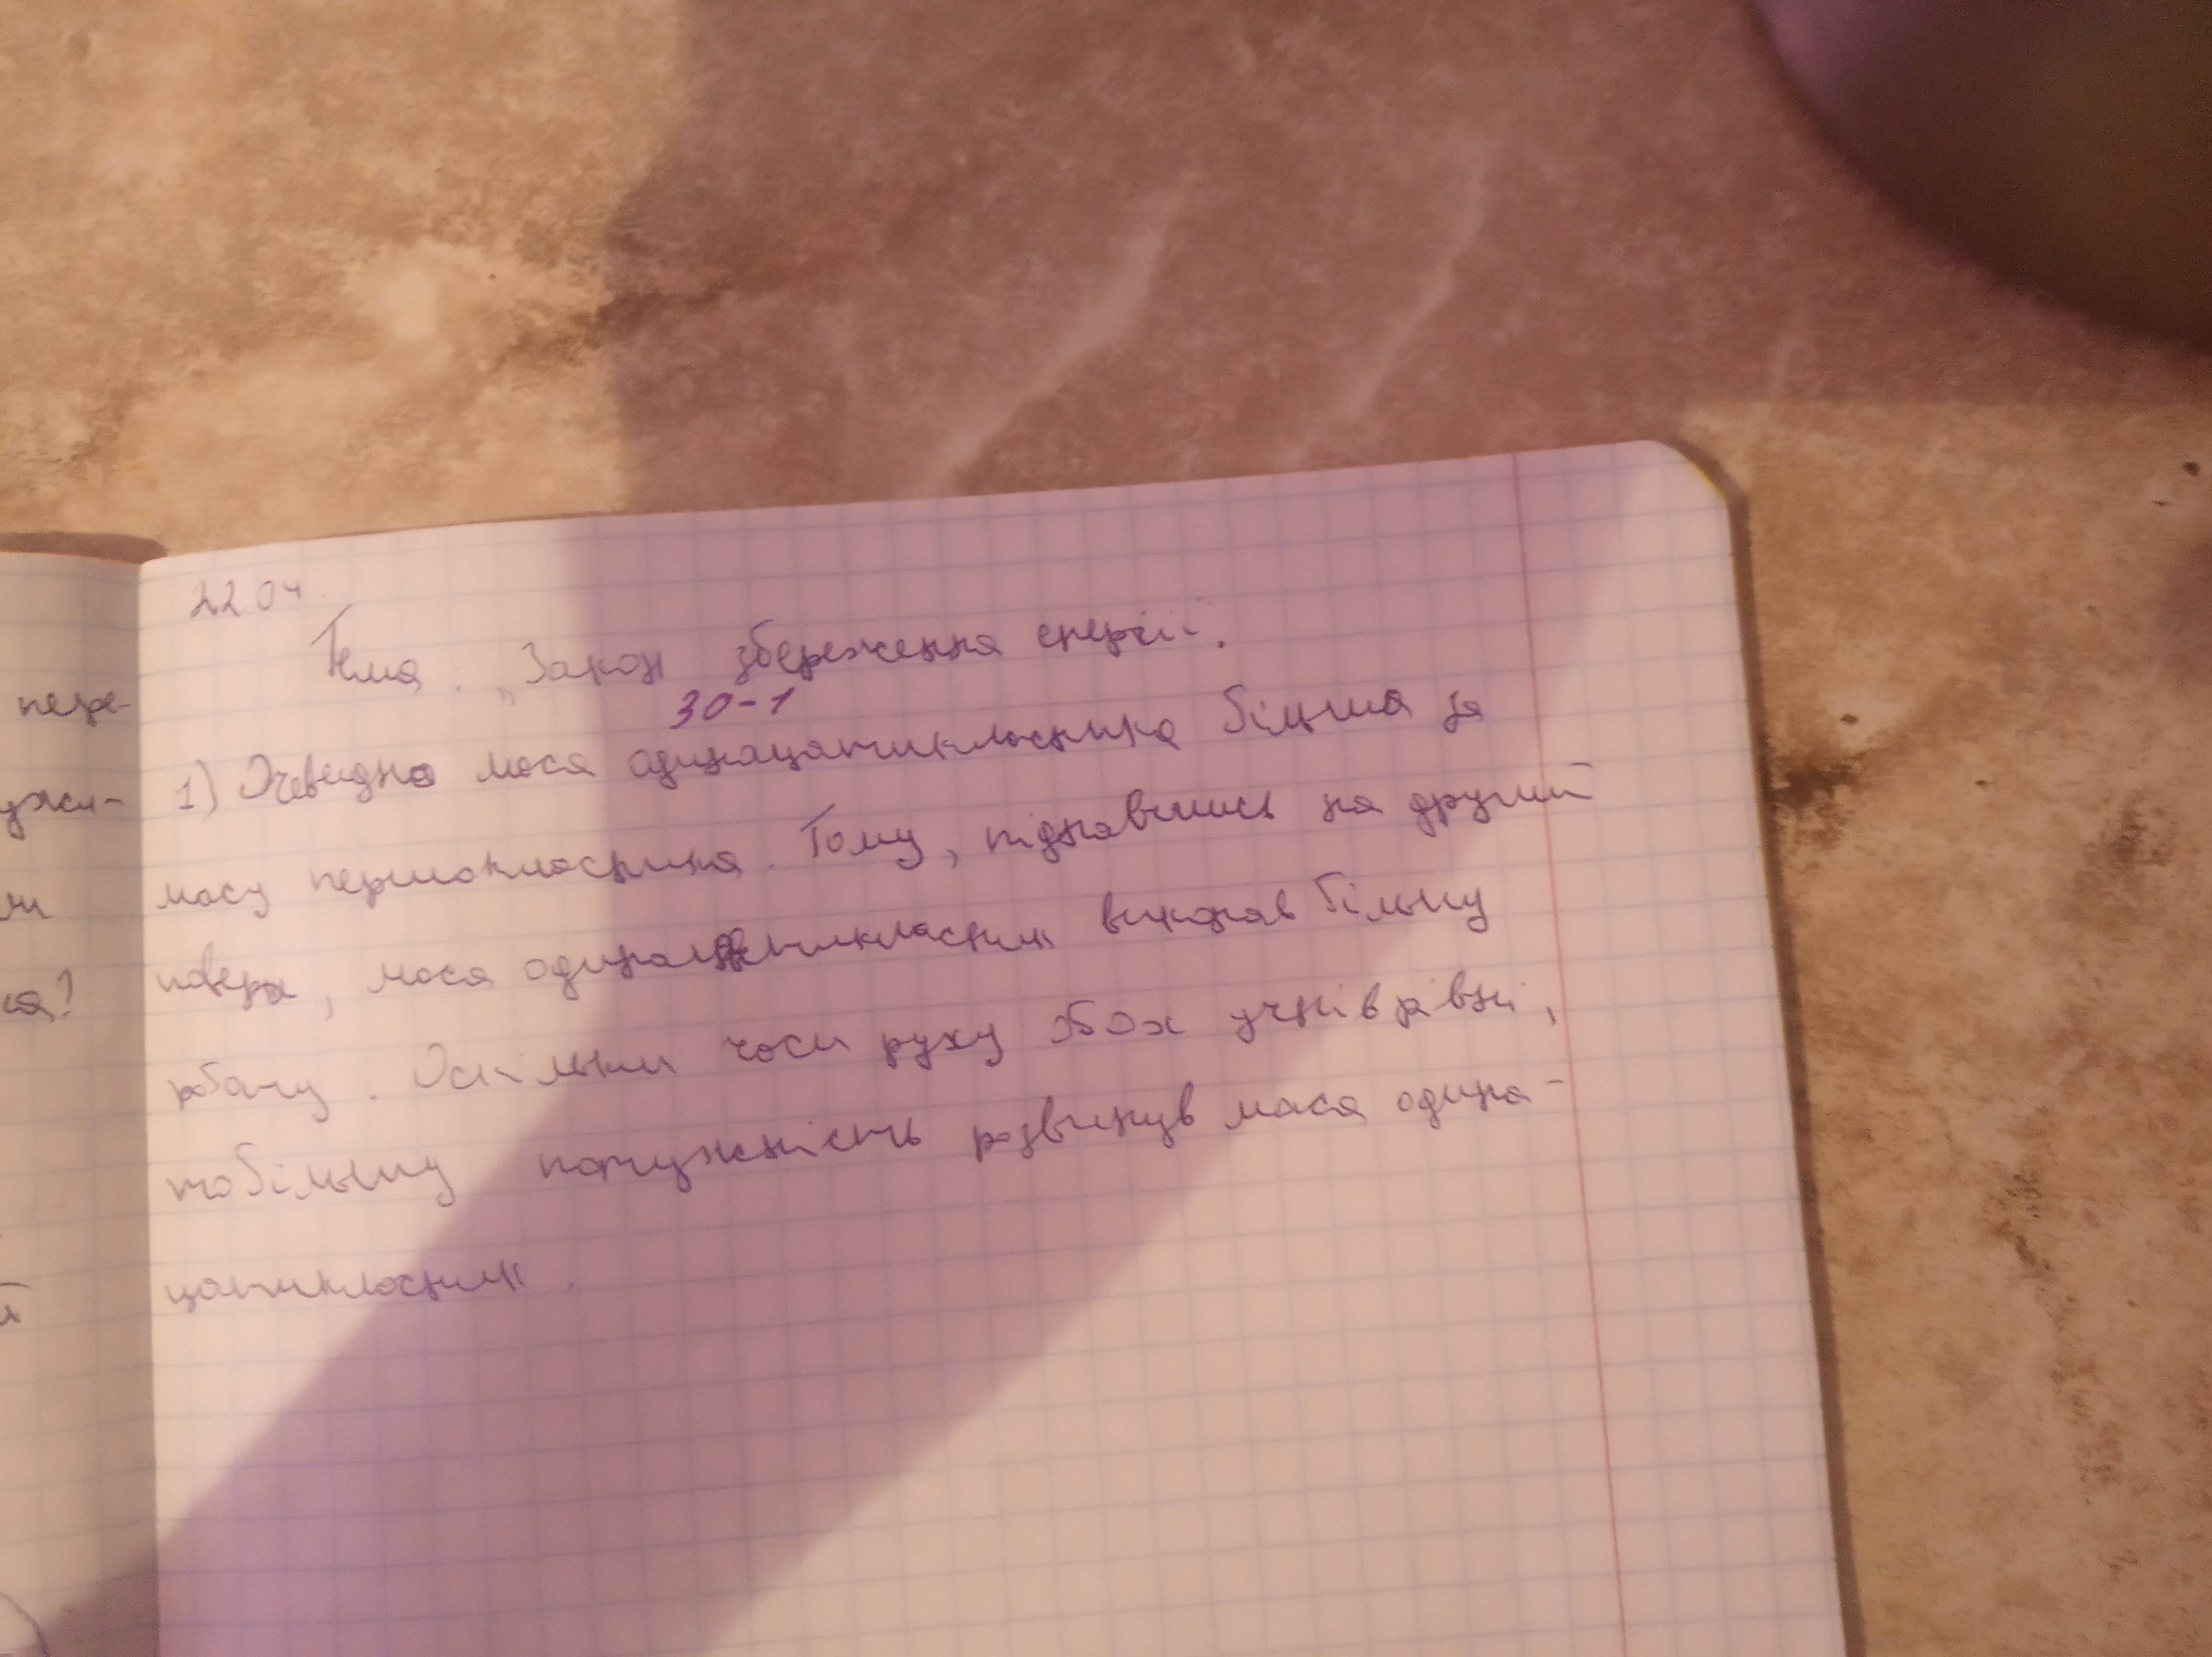 22 04.
Тема: „Закон збереження енергії".
30-1
1) Очевидно маса одинадцятикласника більша за
масу першокласника. Тому, піднявшись на другий
поверх, маса одинадцятикласник виконав більшу
роботу. Оскільки часи руху обох учнів рівні,
то більшу потужність розвинув маса одина-
цятикласник.
пере-
ужи-
ли
ся?